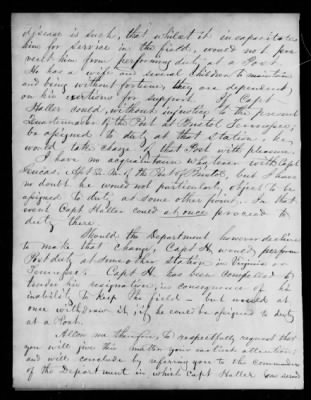 disease is such, that whilst it incapacitates
him for service in the field, would not pre
vent him from performing duty at a Post.
He has a wife and several children to maintain
and being without fortune, they are dependent
on his exertions for support. If Capt
Haller could, without injustice to the present
Quartermaster of the Post at Bristol Tennessee,
be assigned to duty at that Station he
would take charge of that Post with pleasure.
I have no acquaintance whatever with Capt
A. Q. M. of the Post of Bristol, but I have
no doubt he would not particularly object to be
assigned to duty at some other point. In that
event Capt Haller could at once proceed to
duty there.
Should the Department however decline
to make that change, Capt H. would perform
Post duty at some other station in Virginia or
Tennessee. Capt H. has been compelled to
tender his resignation, in consequence of his
inability to keep the field — but would at
once withdraw it, if he could be assigned to duty
at a Post.
Allow me therefore, to respectfully request that
you will give this matter your earliest attention;
and will conclude by referring you to the Commander
of the Department in which Capt Haller now serves